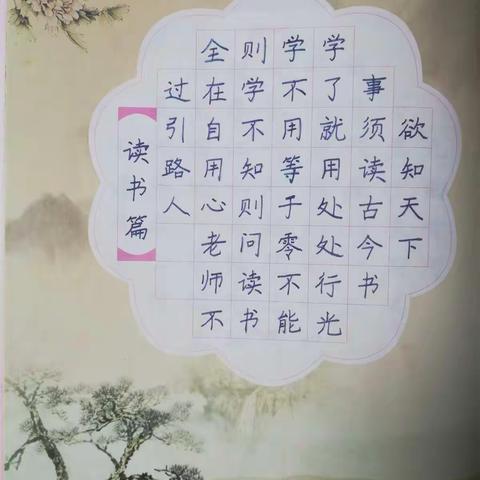 欲知天下
事须读古今书
学了就用处处行光
学不用等于零不能
则学不知则问读书
全在自用心老师不
过引路人
读书篇